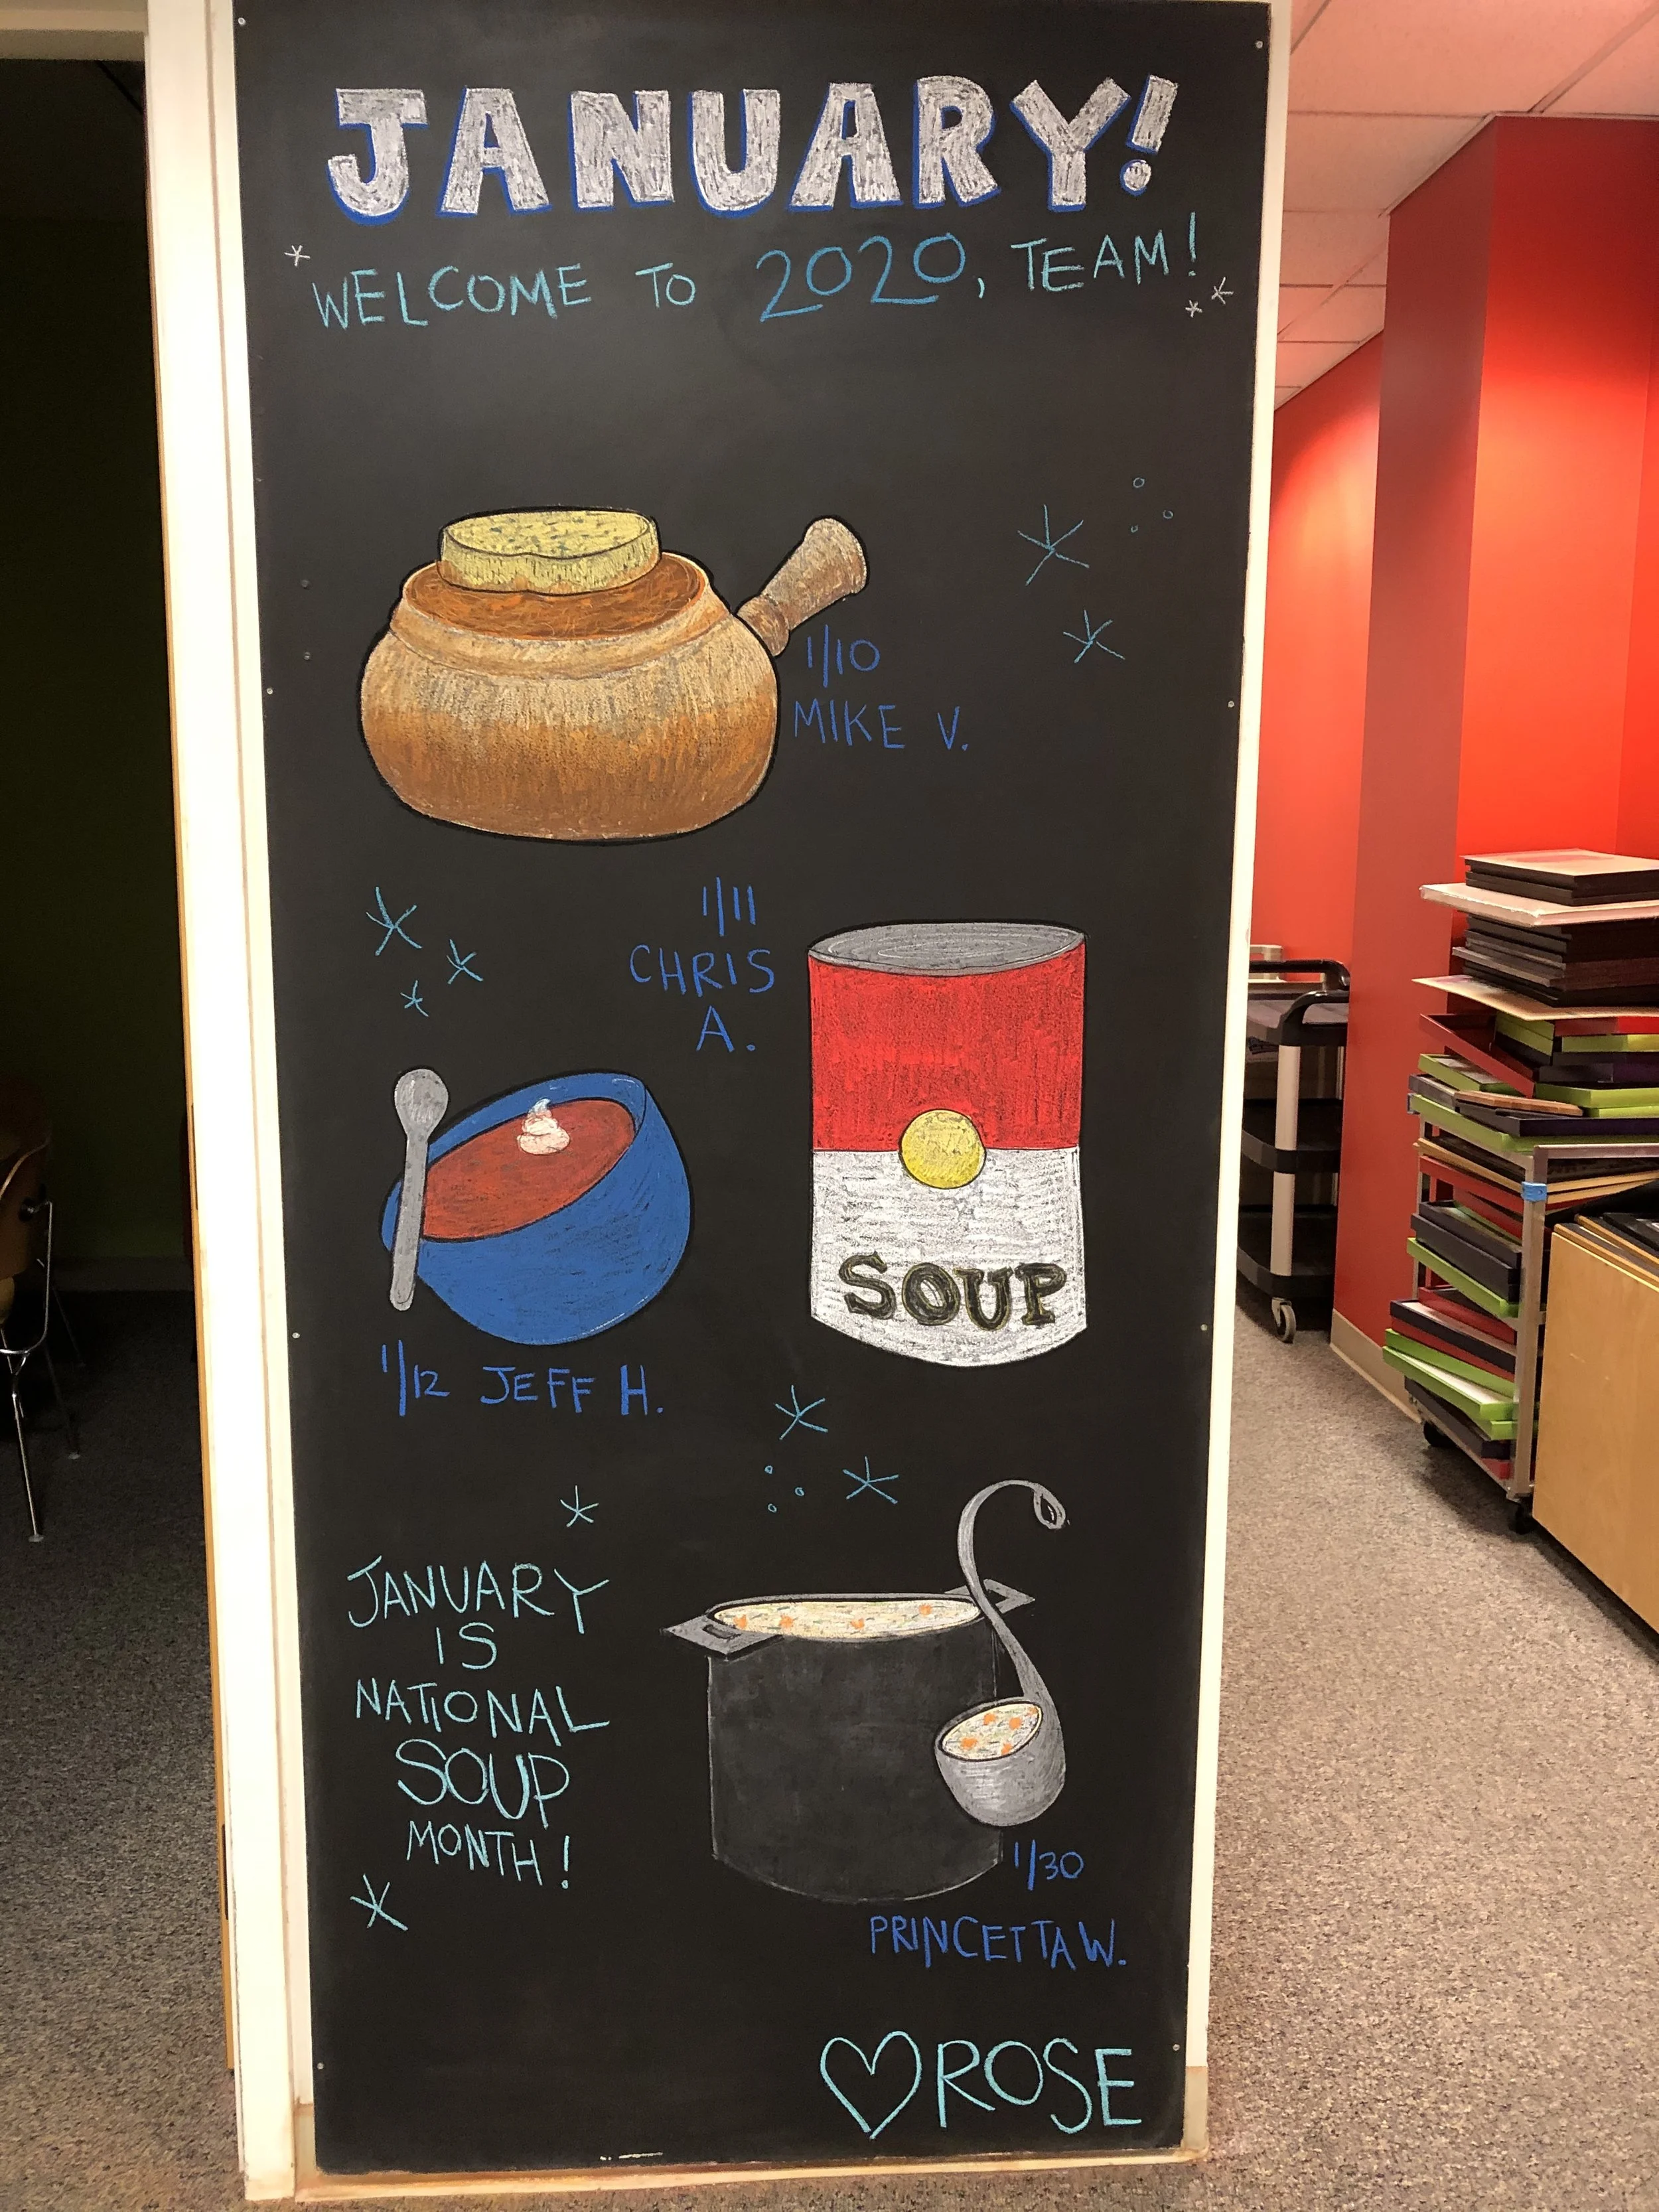 JANUARY!
WELCOME TO 2020, TEAM!
1/10
MIKE V.
1/11
CHRIS
A.
SOUP
1/12 JEFF H.
JANUARY
IS
NATIONAL
SOUP
MONTH!
1/30
PRINCETTA W.
♡ROSE